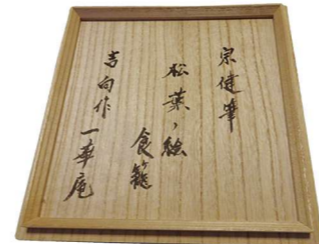 宗健筆
松葉ノ絵
食籠
吉向作
一華庵